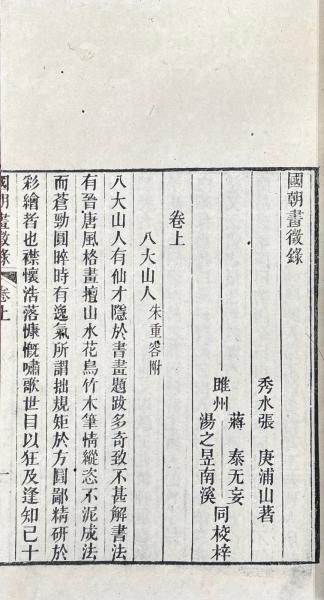 國朝畫徵錄
秀水張 庚浦山著
蔣 泰无妄
睢州 同校梓
湯之昱南溪
卷上
八大山人朱重容附
八大山人有仙才隱於書畫題跋多奇致不甚解書法
有晉唐風格畫擅山水花鳥竹木筆情縱恣不泥成法
而蒼勁圓晬時有逸氣所謂拙規矩於方圓鄙精研於
彩繪者也襟懷浩落慷慨嘯歌世目以狂及逢知己十
國朝畫徵錄 卷上 一